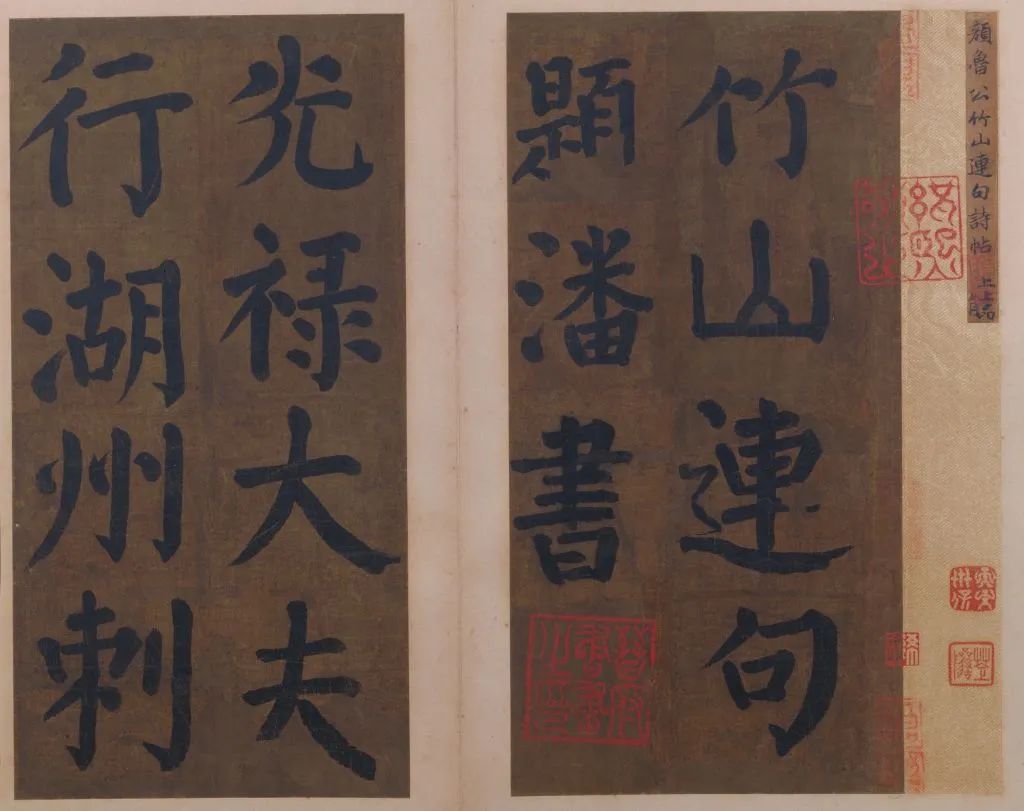 顔魯公竹山連句詩帖 上上
竹山連句
題潘書
光禄大夫
行湖州刺